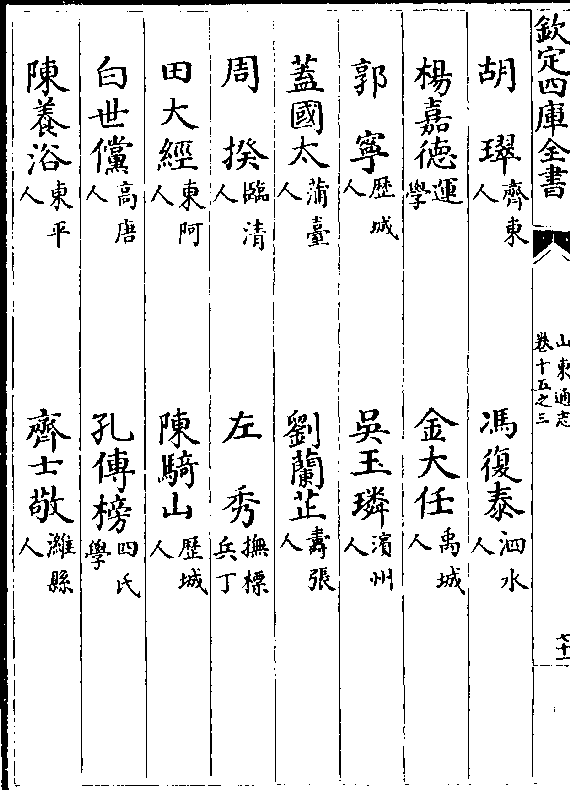 欽定四庫全書
山東通志
卷十五之三
七十一
胡琿齊東人　馮復泰泗水人
楊嘉德運學　金大任禹城人
郭寧歷城人　吳玉璘濱州人
蓋國太蒲臺人　劉蘭芷壽張人
周揆臨清人　左秀撫標兵丁
田大經東阿人　陳騎山歷城人
白世儻高唐人　孔傳榜四氏學
陳養浴東平人　齊士敬濰縣人